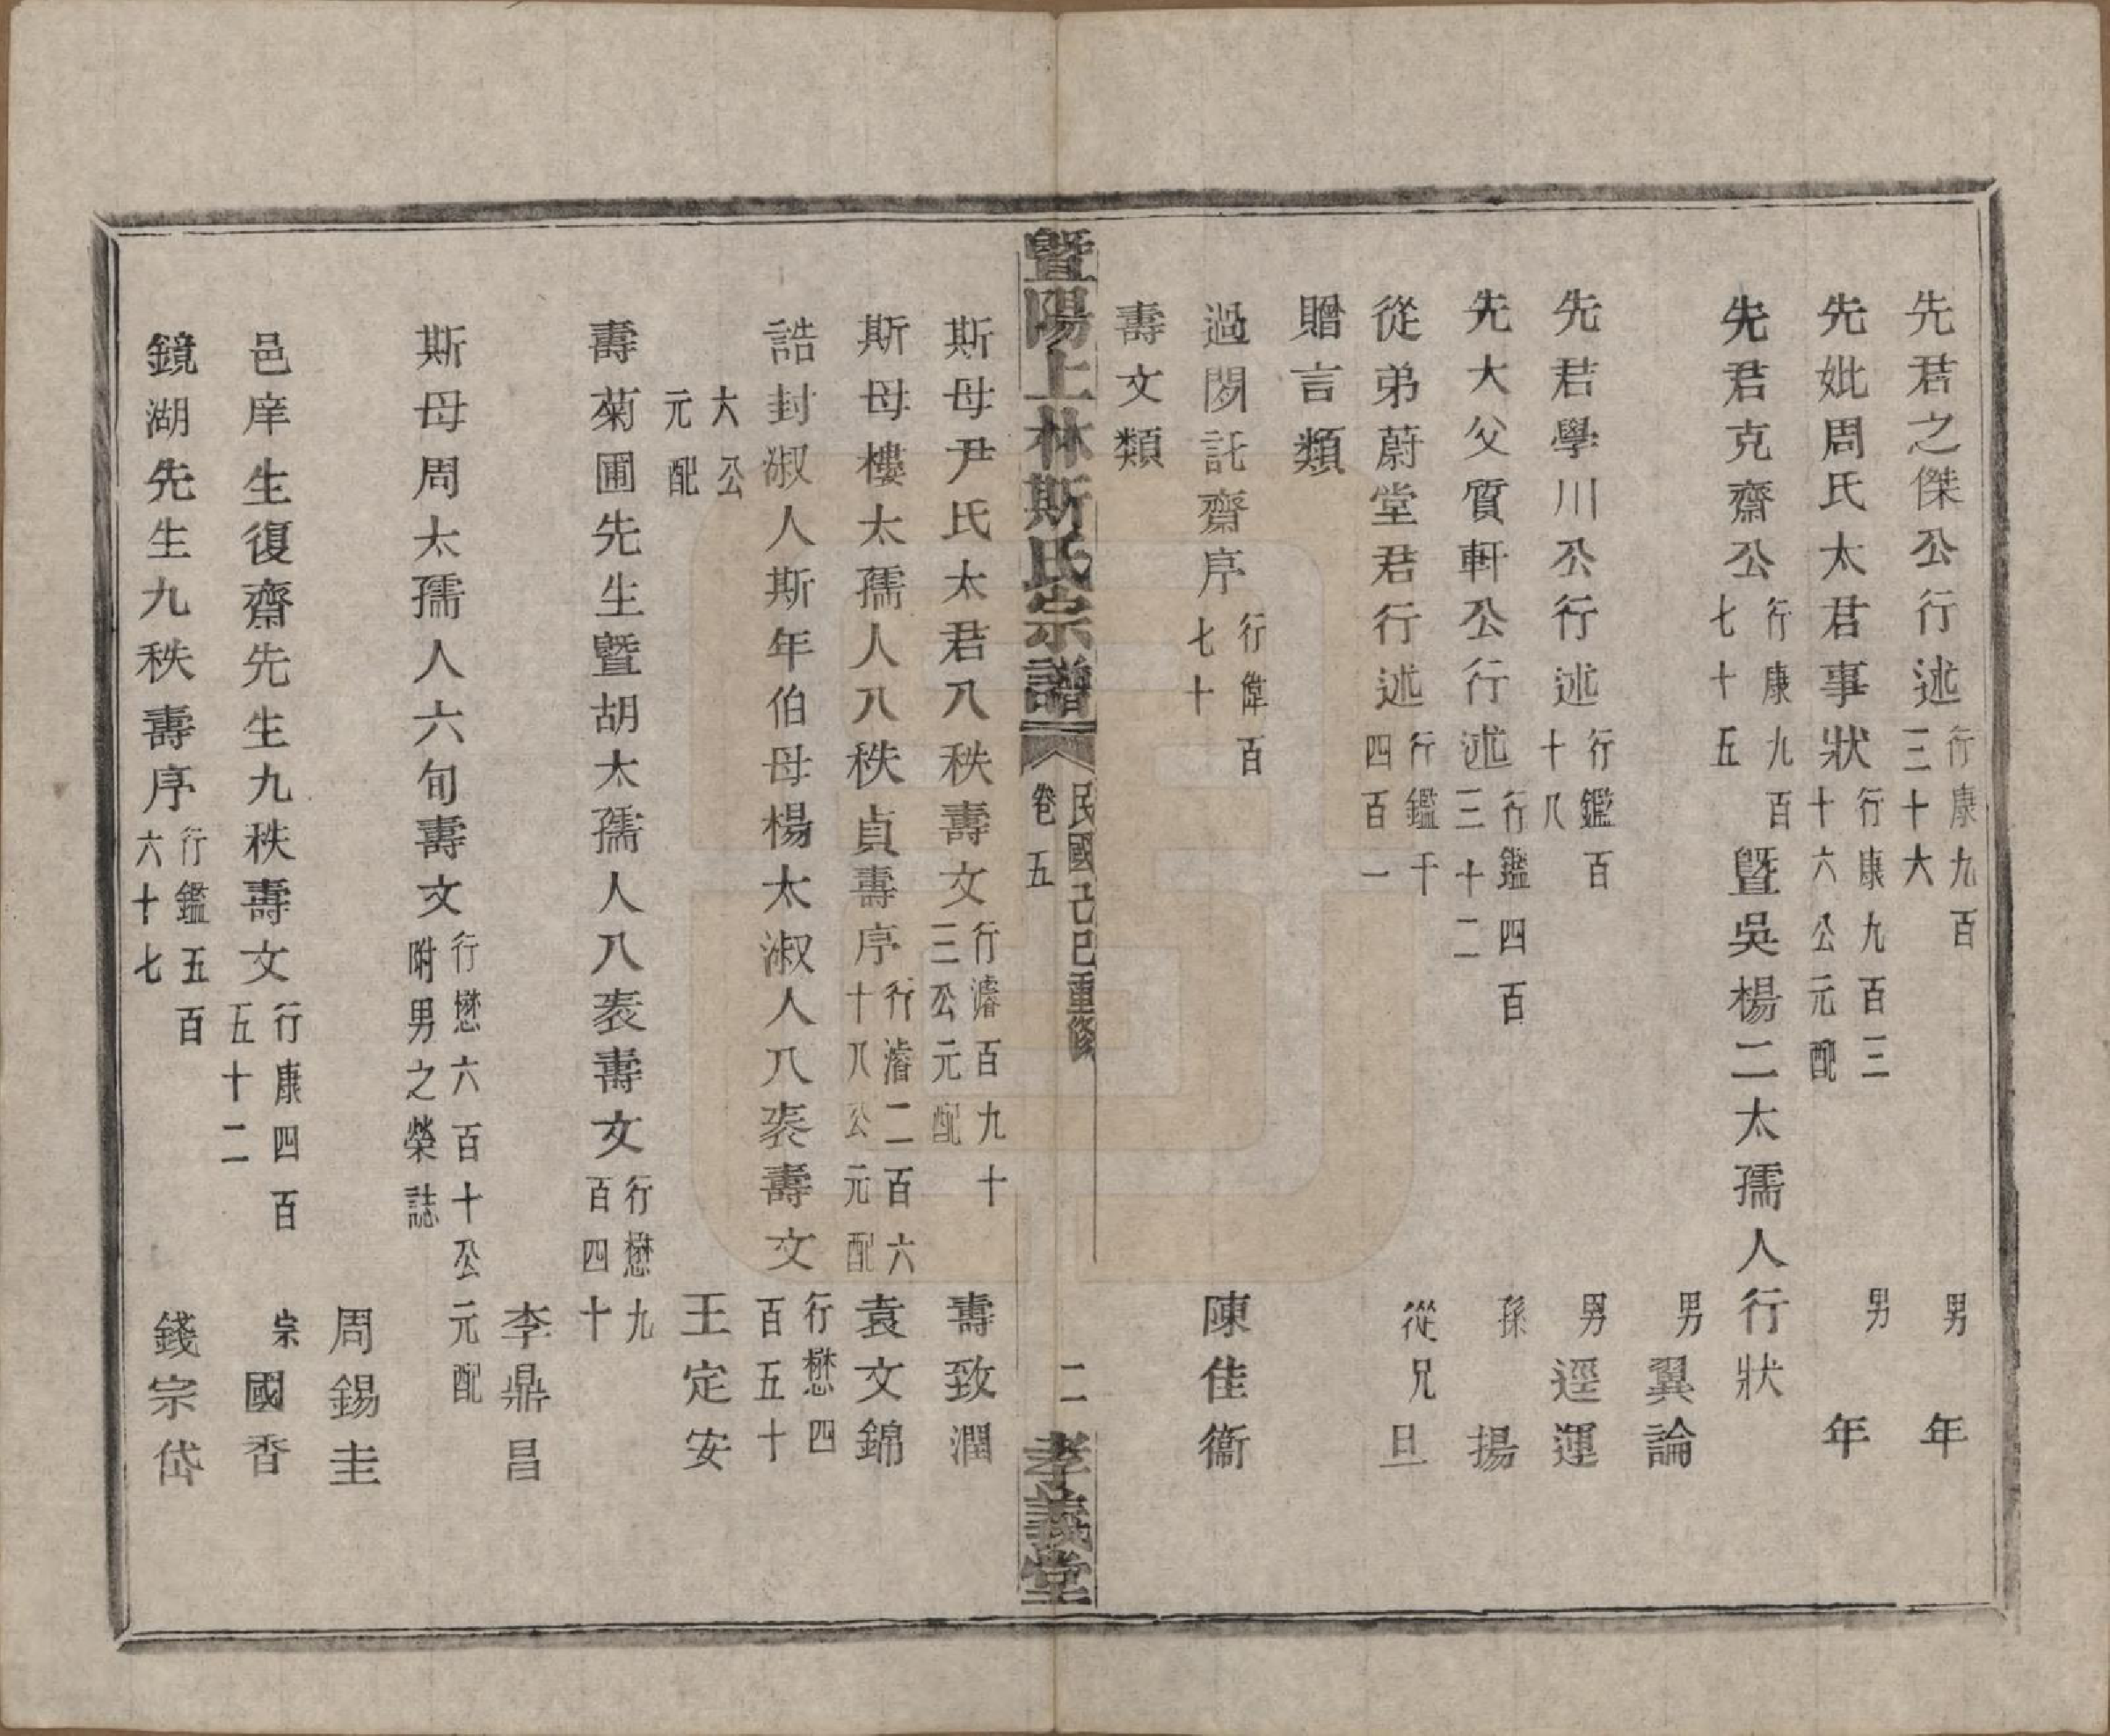 先君之傑公行述行康九百三十六 男 年
先妣周氏太君事狀行康九百三十六公元配 男 年
先君克齋公行康九百七十五暨吳楊二太孺人行狀
男 翼論
先君學川公行述行鑑百十八 男 逕運
先大父質軒公行述行鑑四百三十二 孫 揚
從弟蔚堂君行述行鑑千四百一 從兄 旦
贈言類
過閔託齋序行偉百七十 陳佳衞
壽文類
暨陽上林斯氏宗譜 卷五 民國己巳重修 二 孝義堂
斯母尹氏太君八秩壽文行濬百九十三公元配 壽致潤
斯母樓太孺人八秩貞壽序行濬二百六十八公元配 袁文錦
誥封淑人斯年伯母楊太淑人八袠壽文行懋四百五十
大公元配 王定安
壽菊圃先生暨胡太孺人八袠壽文行懋九百四十
李鼎昌
斯母周太孺人六旬壽文行懋六百十公元配附男之榮誌
周錫圭
邑庠生復齋先生九秩壽文行康四百五十二 宗 國香
鏡湖先生九秩壽序行鑑五百六十七 錢宗岱